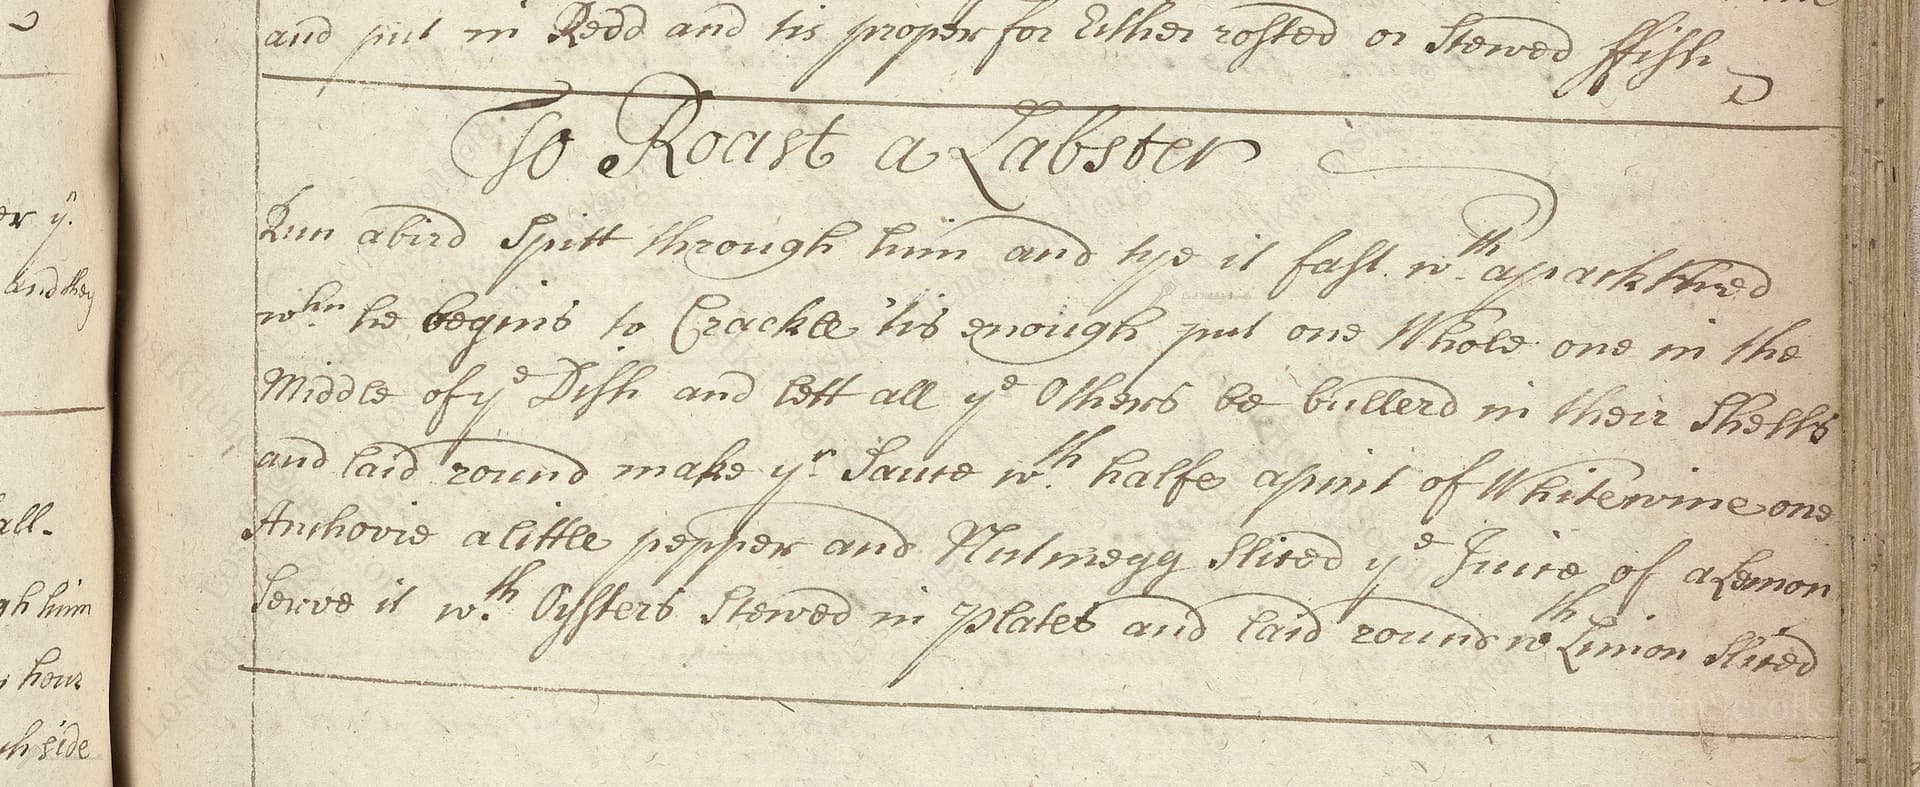 and put in Redd and tis proper for Either rosted or Stewed ffish
To Roast a Labster
Run a bird Spitt through him and tye it fast wth a packthred
whn he begins to Crackle 'tis enough put one Whole one in the
Middle of ye Dish and lett all ye Others be butterd in their Shells
and laid round make yr Sauce wth halfe a pint of Whitewine one
Anchovie a little pepper and Nutmegg Sliced ye Juice of a Lemon
Serve it wth Oysters Stewed in Plates and laid round wth Limon Sliced
er ye
and they
all.
gh him
hour
side